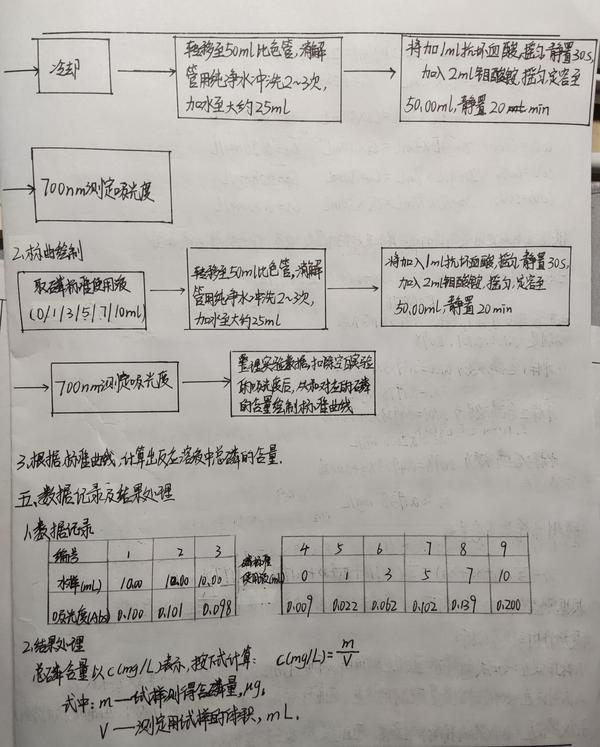 冷却
转移至50ml比色管,消解
管用纯净水冲洗2~3次,
加水至大约25ml
将加1ml抗坏血酸,摇匀静置30s,
加入2ml钼酸铵,摇匀,定容至
50.00ml,静置20 min
700nm测定吸光度
2.标曲绘制
取磷标准使用液
(0/1/3/5/7/10mL)
转移至50ml比色管,消解
管用纯净水冲洗2~3次,
加水至大约25ml
将加入1ml抗坏血酸,摇匀,静置30s,
加入2ml钼酸铵,摇匀,定容至
50.00ml,静置20min
700nm测定吸光度
整理实验数据,扣除空白实验
的吸光度后,从和对应的磷
的含量绘制标准曲线
3.根据标准曲线,计算出反应溶液中总磷的含量.
五、数据记录及结果处理
1.数据记录
编号 1 2 3
水样(mL) 10.00 10.00 10.00
吸光度(Abs) 0.100 0.101 0.098
磷标准 4 5 6 7 8 9
使用液(mL) 0 1 3 5 7 10
0.009 0.022 0.062 0.102 0.139 0.200
2.结果处理
总磷含量以C(mg/L)表示,按下式计算: C(mg/L)=m/V
式中: m—试样测得含磷量,μg。
V—测定用试样的体积,mL.